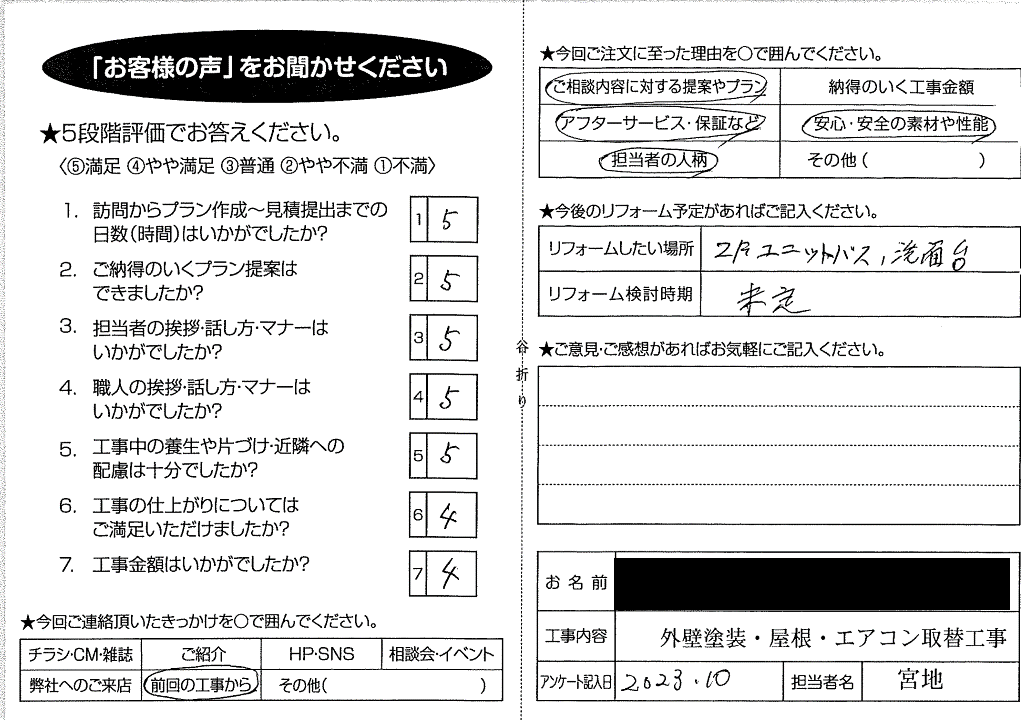 「お客様の声」をお聞かせください
★5段階評価でお答えください。
〈⑤満足 ④やや満足 ③普通 ②やや不満 ①不満〉
1. 訪問からプラン作成～見積提出までの
日数(時間)はいかがでしたか?
1 5
2. ご納得のいくプラン提案は
できましたか?
2 5
3. 担当者の挨拶・話し方・マナーは
いかがでしたか?
3 5
4. 職人の挨拶・話し方・マナーは
いかがでしたか?
4 5
5. 工事中の養生や片づけ・近隣への
配慮は十分でしたか?
5 5
6. 工事の仕上がりについては
ご満足いただけましたか?
6 4
7. 工事金額はいかがでしたか?
7 4
★今回ご連絡頂いたきっかけを○で囲んでください。
チラシ・CM・雑誌 ご紹介 HP・SNS 相談会・イベント
弊社へのご来店 前回の工事から その他( )
谷折り
★今回ご注文に至った理由を○で囲んでください。
ご相談内容に対する提案やプラン 納得のいく工事金額
アフターサービス・保証など 安心・安全の素材や性能
担当者の人柄 その他( )
★今後のリフォーム予定があればご記入ください。
リフォームしたい場所 2Fユニットバス,洗面台
リフォーム検討時期 未定
★ご意見・ご感想があればお気軽にご記入ください。
お名前
工事内容 外壁塗装・屋根・エアコン取替工事
アンケート記入日 2023.10 担当者名 宮地